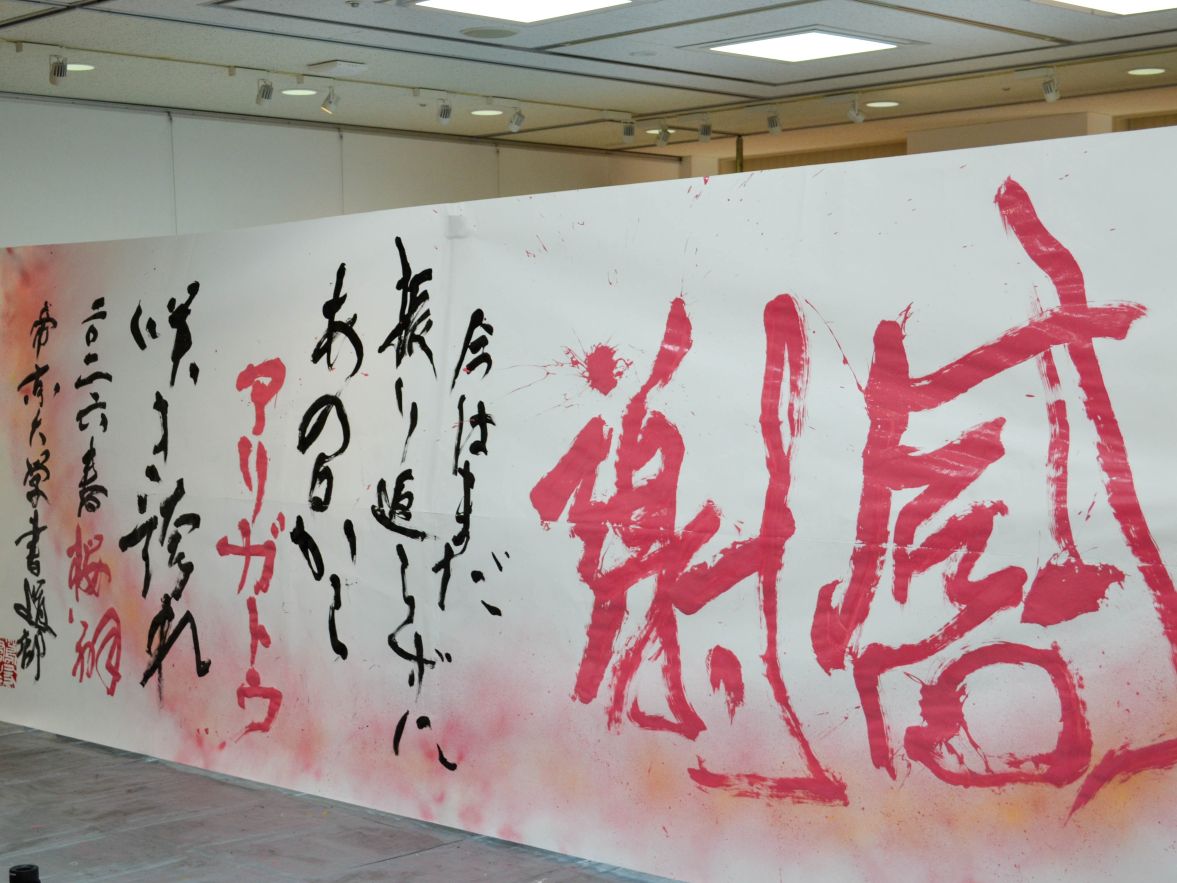 感謝
今はまだ
振り返らずに
あの日から
アリガトウ
咲き誇れ
二〇二六春 桜
帝京大学書道部